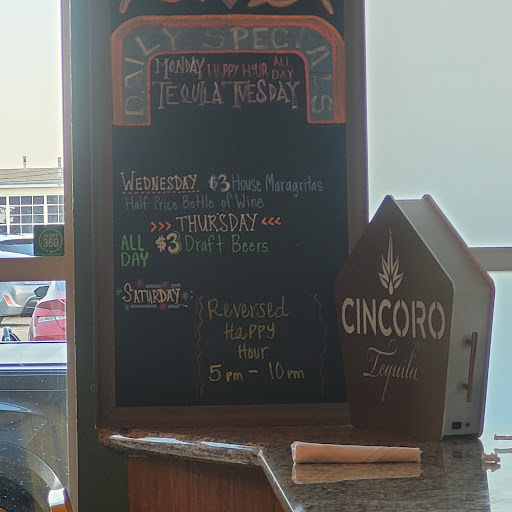 DAILY SPECIALS
MONDAY HAPPY HOUR ALL DAY
TEQUILA TUESDAY
WEDNESDAY $3 House Maragritas
Half Price Bottle of Wine
>>> THURSDAY <<<
ALL DAY $3 Draft Beers
SATURDAY
Reversed
Happy
Hour
5pm - 10pm
CINCORO
Tequila
360